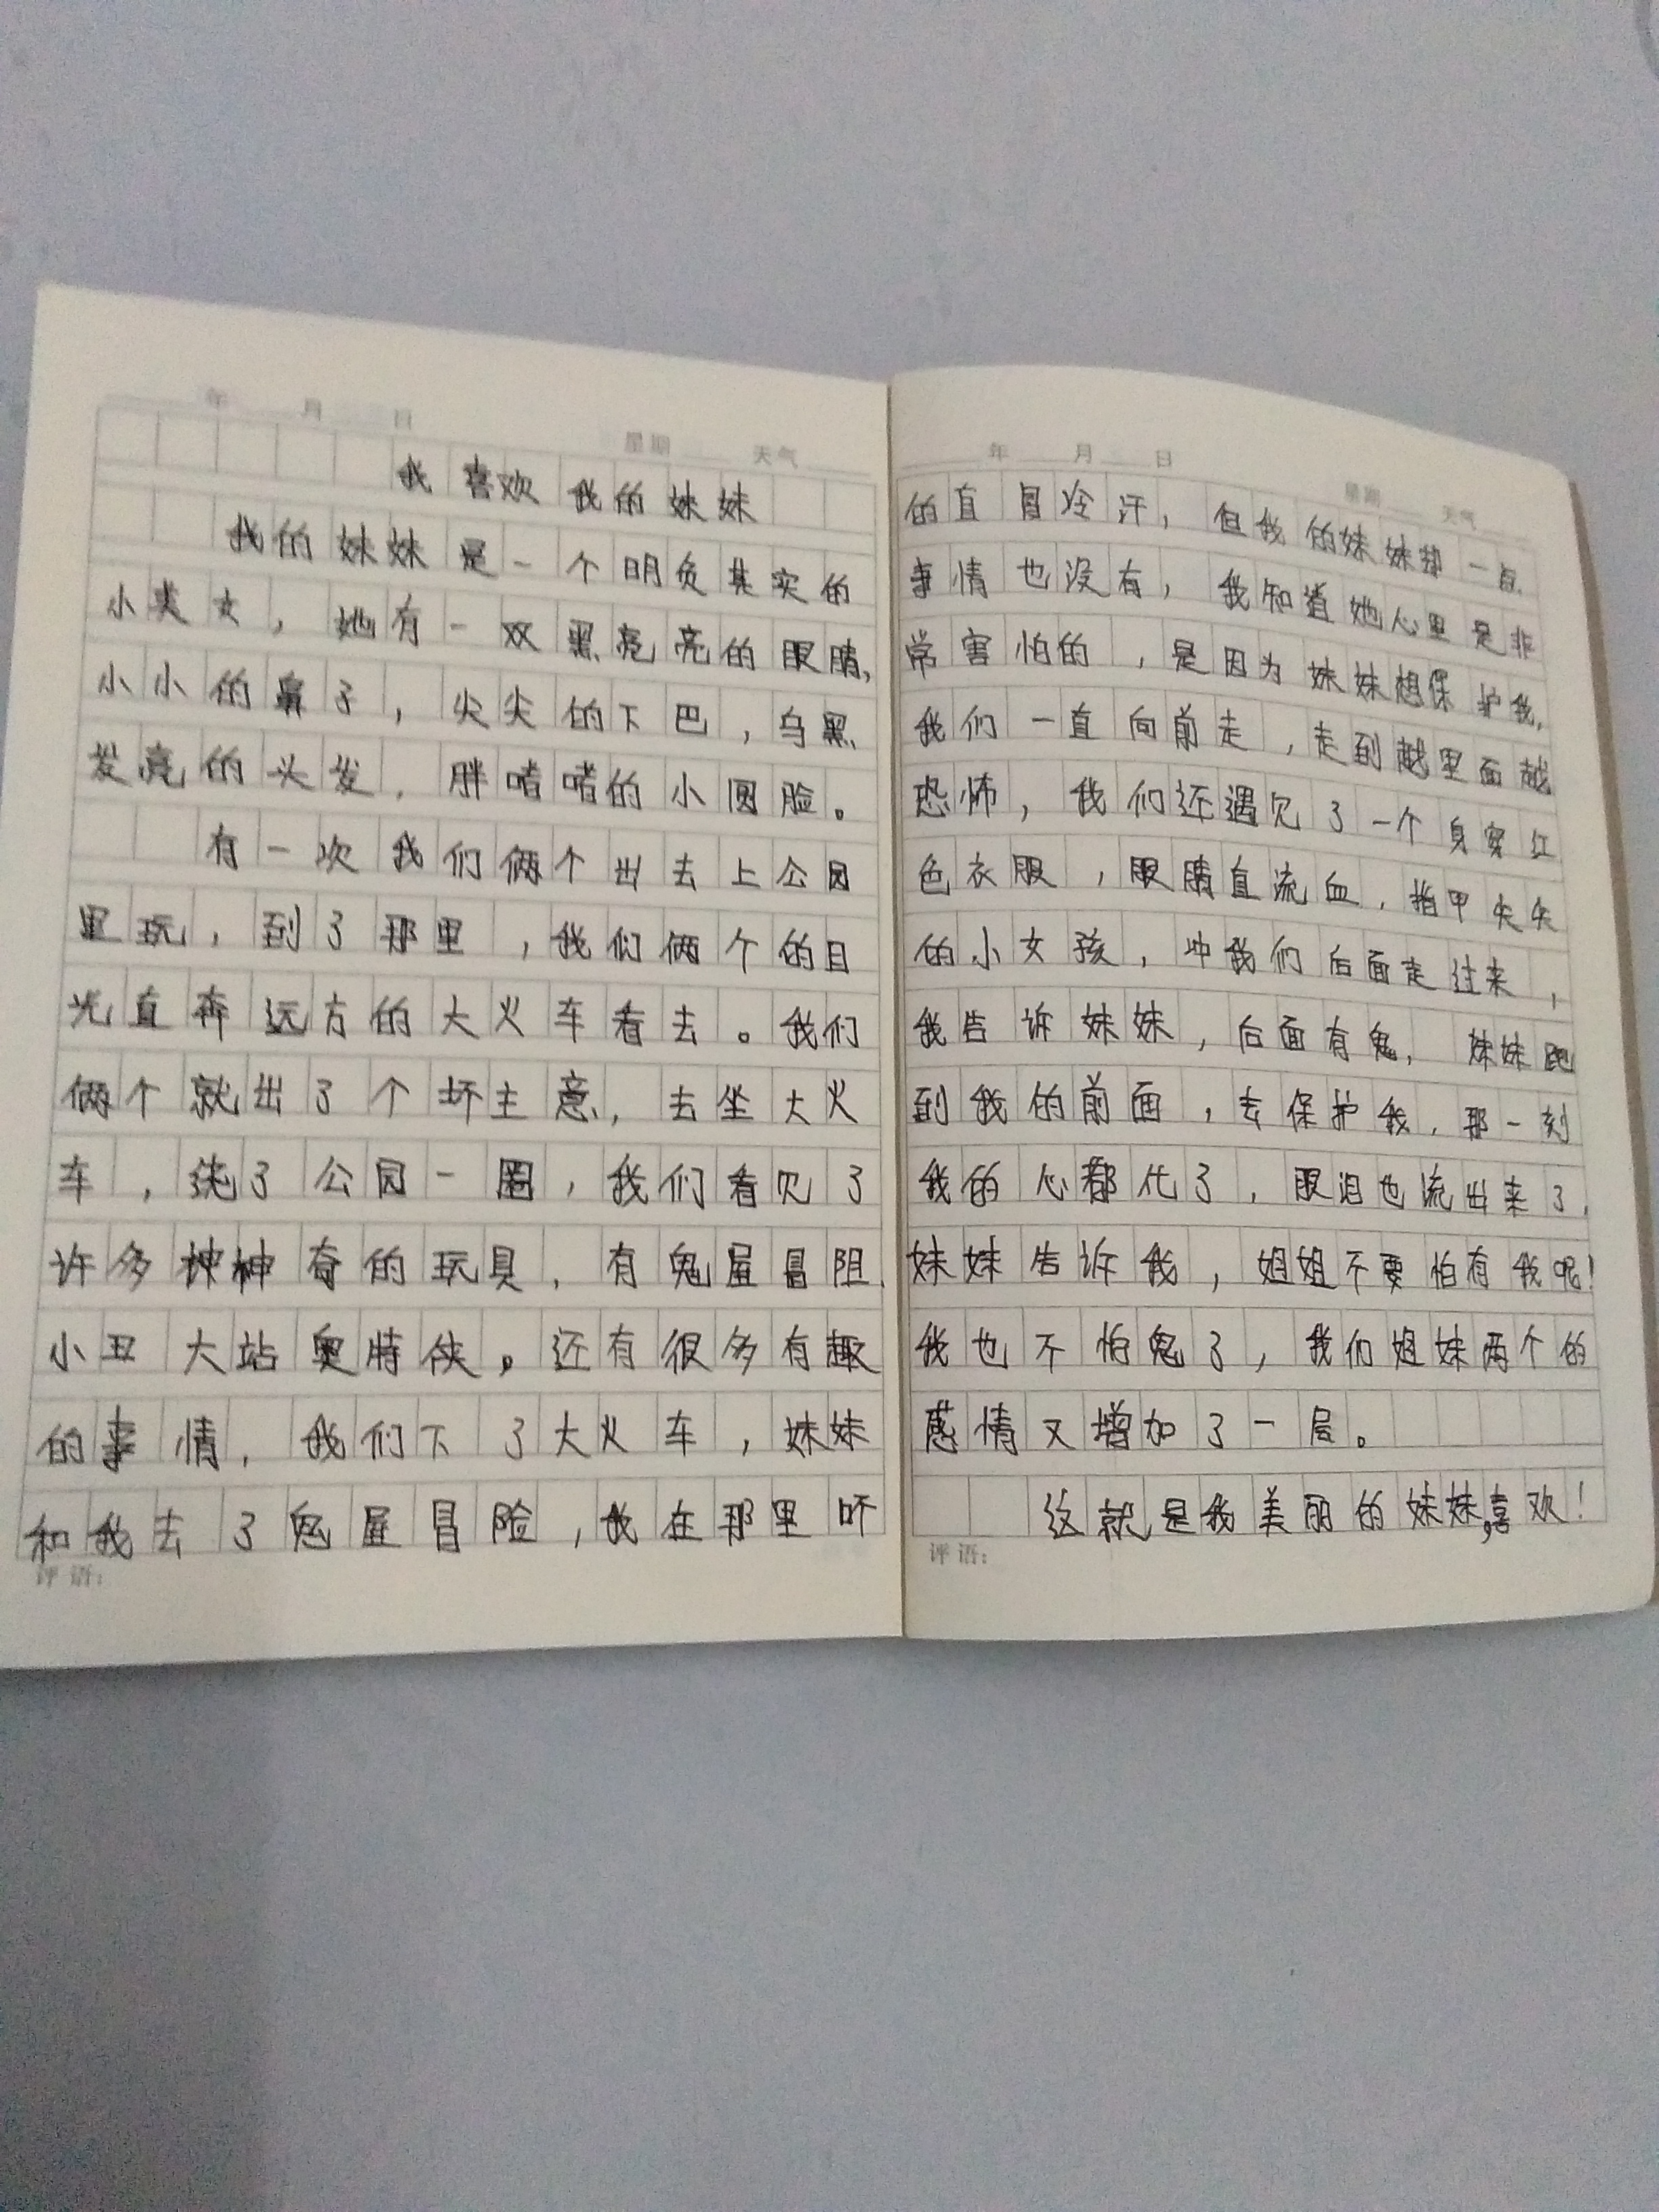 年 月 日
星期 天气
我喜欢我的妹妹
我的妹妹是一个明负其实的
小美女，她有一双黑亮亮的眼睛，
小小的鼻子，尖尖的下巴，乌黑
发亮的头发，胖嘟嘟的小圆脸。
有一次我们俩个出去上公园
里玩，到了那里，我们俩个的目
光直奔远方的大火车看去。我们
俩个就出了个坏主意，去坐大火
车，绕了公园一圈，我们看见了
许多神神奇的玩具，有鬼屋冒阻，
小丑大站奥特侠。还有很多有趣
的事情，我们下了大火车，妹妹
和我去了鬼屋冒险，我在那里吓
评语：
年 月 日
星期 天气
的直冒冷汗，但我的妹妹却一点
事情也没有，我知道她心里是非
常害怕的，是因为妹妹想保护我，
我们一直向前走，走到越里面越
恐怖，我们还遇见了一个身穿红
色衣服，眼睛直流血，指甲尖尖
的小女孩，冲我们后面走过来，
我告诉妹妹，后面有鬼，妹妹跑
到我的前面，去保护我，那一刻
我的心都化了，眼泪也流出来了，
妹妹告诉我，姐姐不要怕有我呢！
我也不怕鬼了，我们姐妹两个的
感情又增加了一层。
这就是我美丽的妹妹，喜欢！
评语：